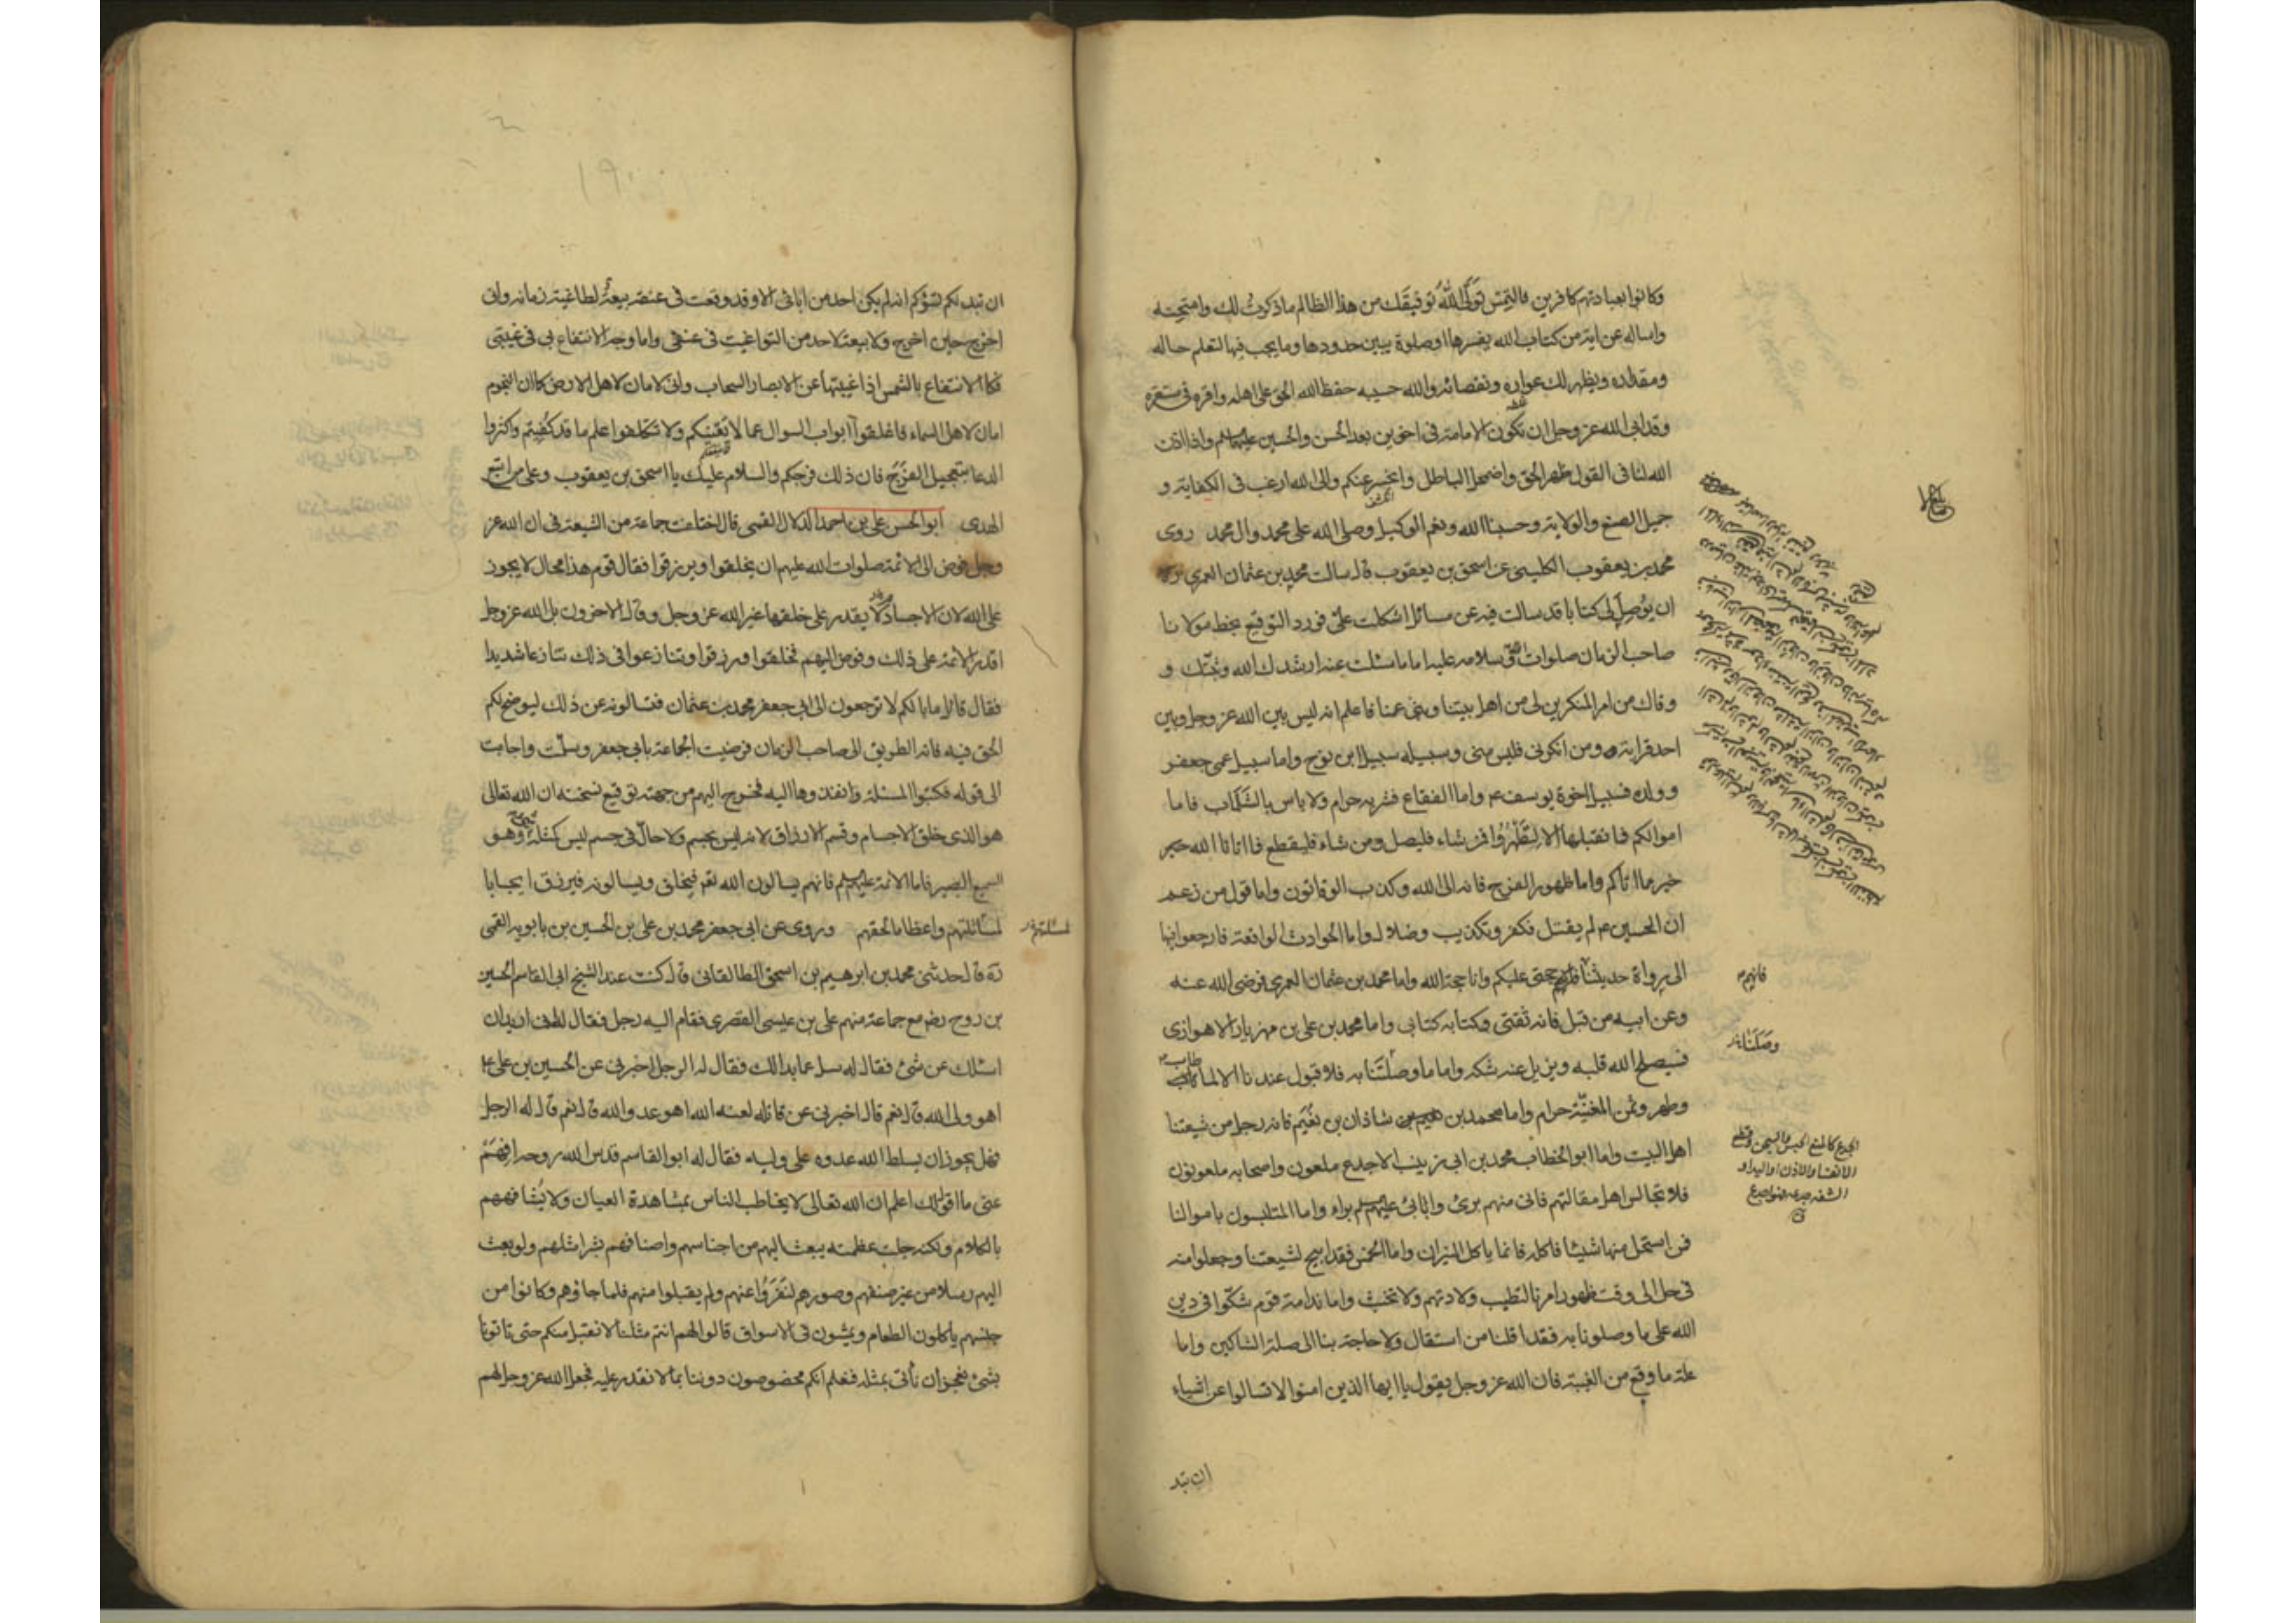 وكانوا بعبادتهم كافرين فالتمس تولى الله توفيقك من هذا الظالم ما ذكرت لك وامتحنه
واساله عن اية من كتاب الله يفسرها او صلوة يبين حدودها وما يجب فيها لتعلم حاله
ومقداره ويظهر لك عواره ونقصانه والله حسيبه حفظ الله الحق على اهله واقره في مستقره
وقد ابى الله عز وجل ان تكون الامامة في اخوين بعد الحسن والحسين واذا اذن
الله لنا في القول ظهر الحق واضمحل الباطل وانحسر عنكم والى الله ارغب في الكفاية و
جميل الصنع والولاية وحسبنا الله ونعم الوكيل وصلى الله على محمد وال محمد روى
محمد بن يعقوب الكليني عن اسحق بن يعقوب قال سالت محمد بن عثمان العمري ره
ان يوصل لى كتابا قد سالت فيه عن مسائل اشكلت على فورد التوقيع بخط مولانا
صاحب الزمان صلوات الله وسلامه عليه اما ما سئلت عنه ارشدك الله وثبتك و
وقاك من امر المنكرين لى من اهل بيتنا وبنى عمنا فاعلم انه ليس بين الله عز وجل وبين
احد قرابة ومن انكرنى فليس منى وسبيله سبيل ابن نوح واما سبيل عمى جعفر
وولده فسبيل اخوة يوسف ع واما الفقاع فشربه حرام ولا باس بالشلماب فاما
اموالكم فما نقبلها الا لتطهروا فمن شاء فليصل ومن شاء فليقطع فما اتانا الله خير
خير مما اتاكم واما ظهور الفرج فانه الى الله وكذب الوقاتون واما قول من زعم
ان الحسين ع لم يقتل فكفر وتكذيب وضلال واما الحوادث الواقعة فارجعوا فيها
الى رواة حديثنا فانهم حجتى عليكم وانا حجة الله واما محمد بن عثمان العمري فرضى الله عنه
فانهم
وعن ابيه من قبل فانه ثقتى وكتابه كتابى واما محمد بن على بن مهزيار الاهوازى
فسيصلح الله قلبه ويزيل عنه شكه واما ما وصلتنا به فلا قبول عندنا الا لما طاب
وصلتنا
وطهر وثمن المغنية حرام واما محمد بن شاذان بن نعيم فانه رجل من شيعتنا
اهل البيت واما ابو الخطاب محمد بن ابى زينب الاجدع ملعون واصحابه ملعونون
فلا تجالس اهل مقالتهم فانى منهم برئ وابائى عليهم براء واما المتلبسون باموالنا
فمن استحل منها شيئا فاكله فانما ياكل النيران واما الخمس فقد ابيح لشيعتنا وجعلوا منه
فى حل الى وقت ظهور امرنا لتطيب ولادتهم ولا تخبث واما ندامة قوم شكوا فى دين
الله على ما وصلونا به فقد اقلنا من استقال ولا حاجة بنا الى صلة الشاكين واما
علة ما وقع من الغيبة فان الله عز وجل يقول يا ايها الذين امنوا لا تسالوا عن اشياء
ان تبد
ان تبد لكم تسؤكم انه لم يكن احد من ابائى الا وقد وقعت فى عنقه بيعة لطاغية زمانه وانى
اخرج حين اخرج ولا بيعة لاحد من الطواغيت فى عنقى واما وجه الانتفاع بى فى غيبتى
فكالانتفاع بالشمس اذا غيبتها عن الابصار السحاب وانى لامان لاهل الارض كما ان النجوم
امان لاهل السماء فاغلقوا ابواب السوال عما لا يعنيكم ولا تتكلفوا علم ما قد كفيتم واكثروا
الدعا بتعجيل الفرج فان ذلك فرجكم والسلام عليك يا اسحق بن يعقوب وعلى من اتبع
الهدى ابو الحسن على بن احمد الدلال القمى قال اختلف جماعة من الشيعة فى ان الله عز
وجل فوض الى الائمة صلوات الله عليهم ان يخلقوا ويرزقوا فقال قوم هذا محال لا يجوز
على الله لان الاجسام لا يقدر على خلقها غير الله عز وجل وقال الاخرون بل الله عز وجل
اقدر الائمة على ذلك وفوض اليهم فخلقوا ورزقوا وتنازعوا فى ذلك تنازعا شديدا
فقال قائل ما بالكم لا ترجعون الى ابى جعفر محمد بن عثمان فتسالونه عن ذلك ليوضح لكم
الحق فيه فانه الطريق الى صاحب الزمان فرضيت الجماعة بابى جعفر وسلمت واجابت
الى قوله فكتبوا المسئلة وانفذوها اليه فخرج اليهم من جهته توقيع نسخته ان الله تعالى
هو الذى خلق الاجسام وقسم الارزاق لانه ليس بجسم ولا حال فى جسم ليس كمثله وهو
السميع البصير فاما الائمة عليهم فانهم يسالون الله تعم فيخلق ويسالونه فيرزق ايجابا
لمسائلتهم واعظاما لحقهم وروى عن ابى جعفر محمد بن على بن الحسين بن بابويه القمى
لمسئلتهم
ره قال حدثنى محمد بن ابرهيم بن اسحق الطالقانى قال كنت عند الشيخ ابى القاسم الحسين
بن روح رضه مع جماعة منهم على بن عيسى القصرى فقام اليه رجل فقال له اريد ان
اسئلك عن شئ فقال له سل عما بدا لك فقال له الرجل اخبرنى عن الحسين بن على ع
اهو ولى الله قال نعم قال اخبرنى عن قاتله لعنه الله اهو عدو الله قال نعم قال له الرجل
فهل يجوز ان يسلط الله عدوه على وليه فقال له ابو القاسم قدس الله روحه افهم
عنى ما اقول لك اعلم ان الله تعالى لا يخاطب الناس بمشاهدة العيان ولا يشافههم
بالكلام ولكنه جلت عظمته يبعث اليهم من اجناسهم واصنافهم بشرا مثلهم ولو بعث
اليهم رسلا من غير صنفهم وصورهم لنفروا عنهم ولم يقبلوا منهم فلما جاؤهم وكانوا من
جنسهم ياكلون الطعام ويمشون فى الاسواق قالوا لهم انتم مثلنا لا نقبل منكم حتى تاتونا
بشئ نعجز ان نأتى بمثله فنعلم انكم مخصوصون دوننا بما لا نقدر عليه فجعل الله عز وجل لهم